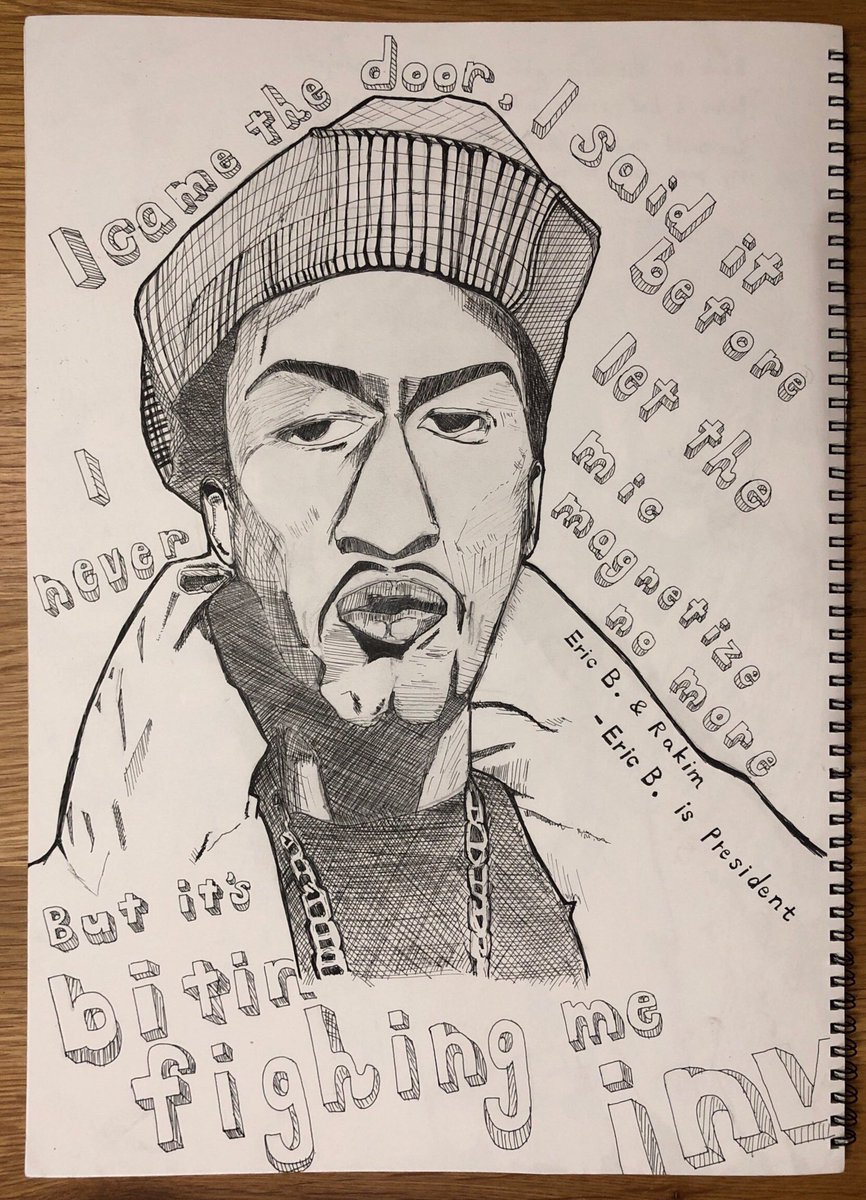 I came the door, I said it
before
I
never
let the
mic
magnetize
no more
Eric B. & Rakim
-Eric B. is President
But it's
bitin
fighing me
inv